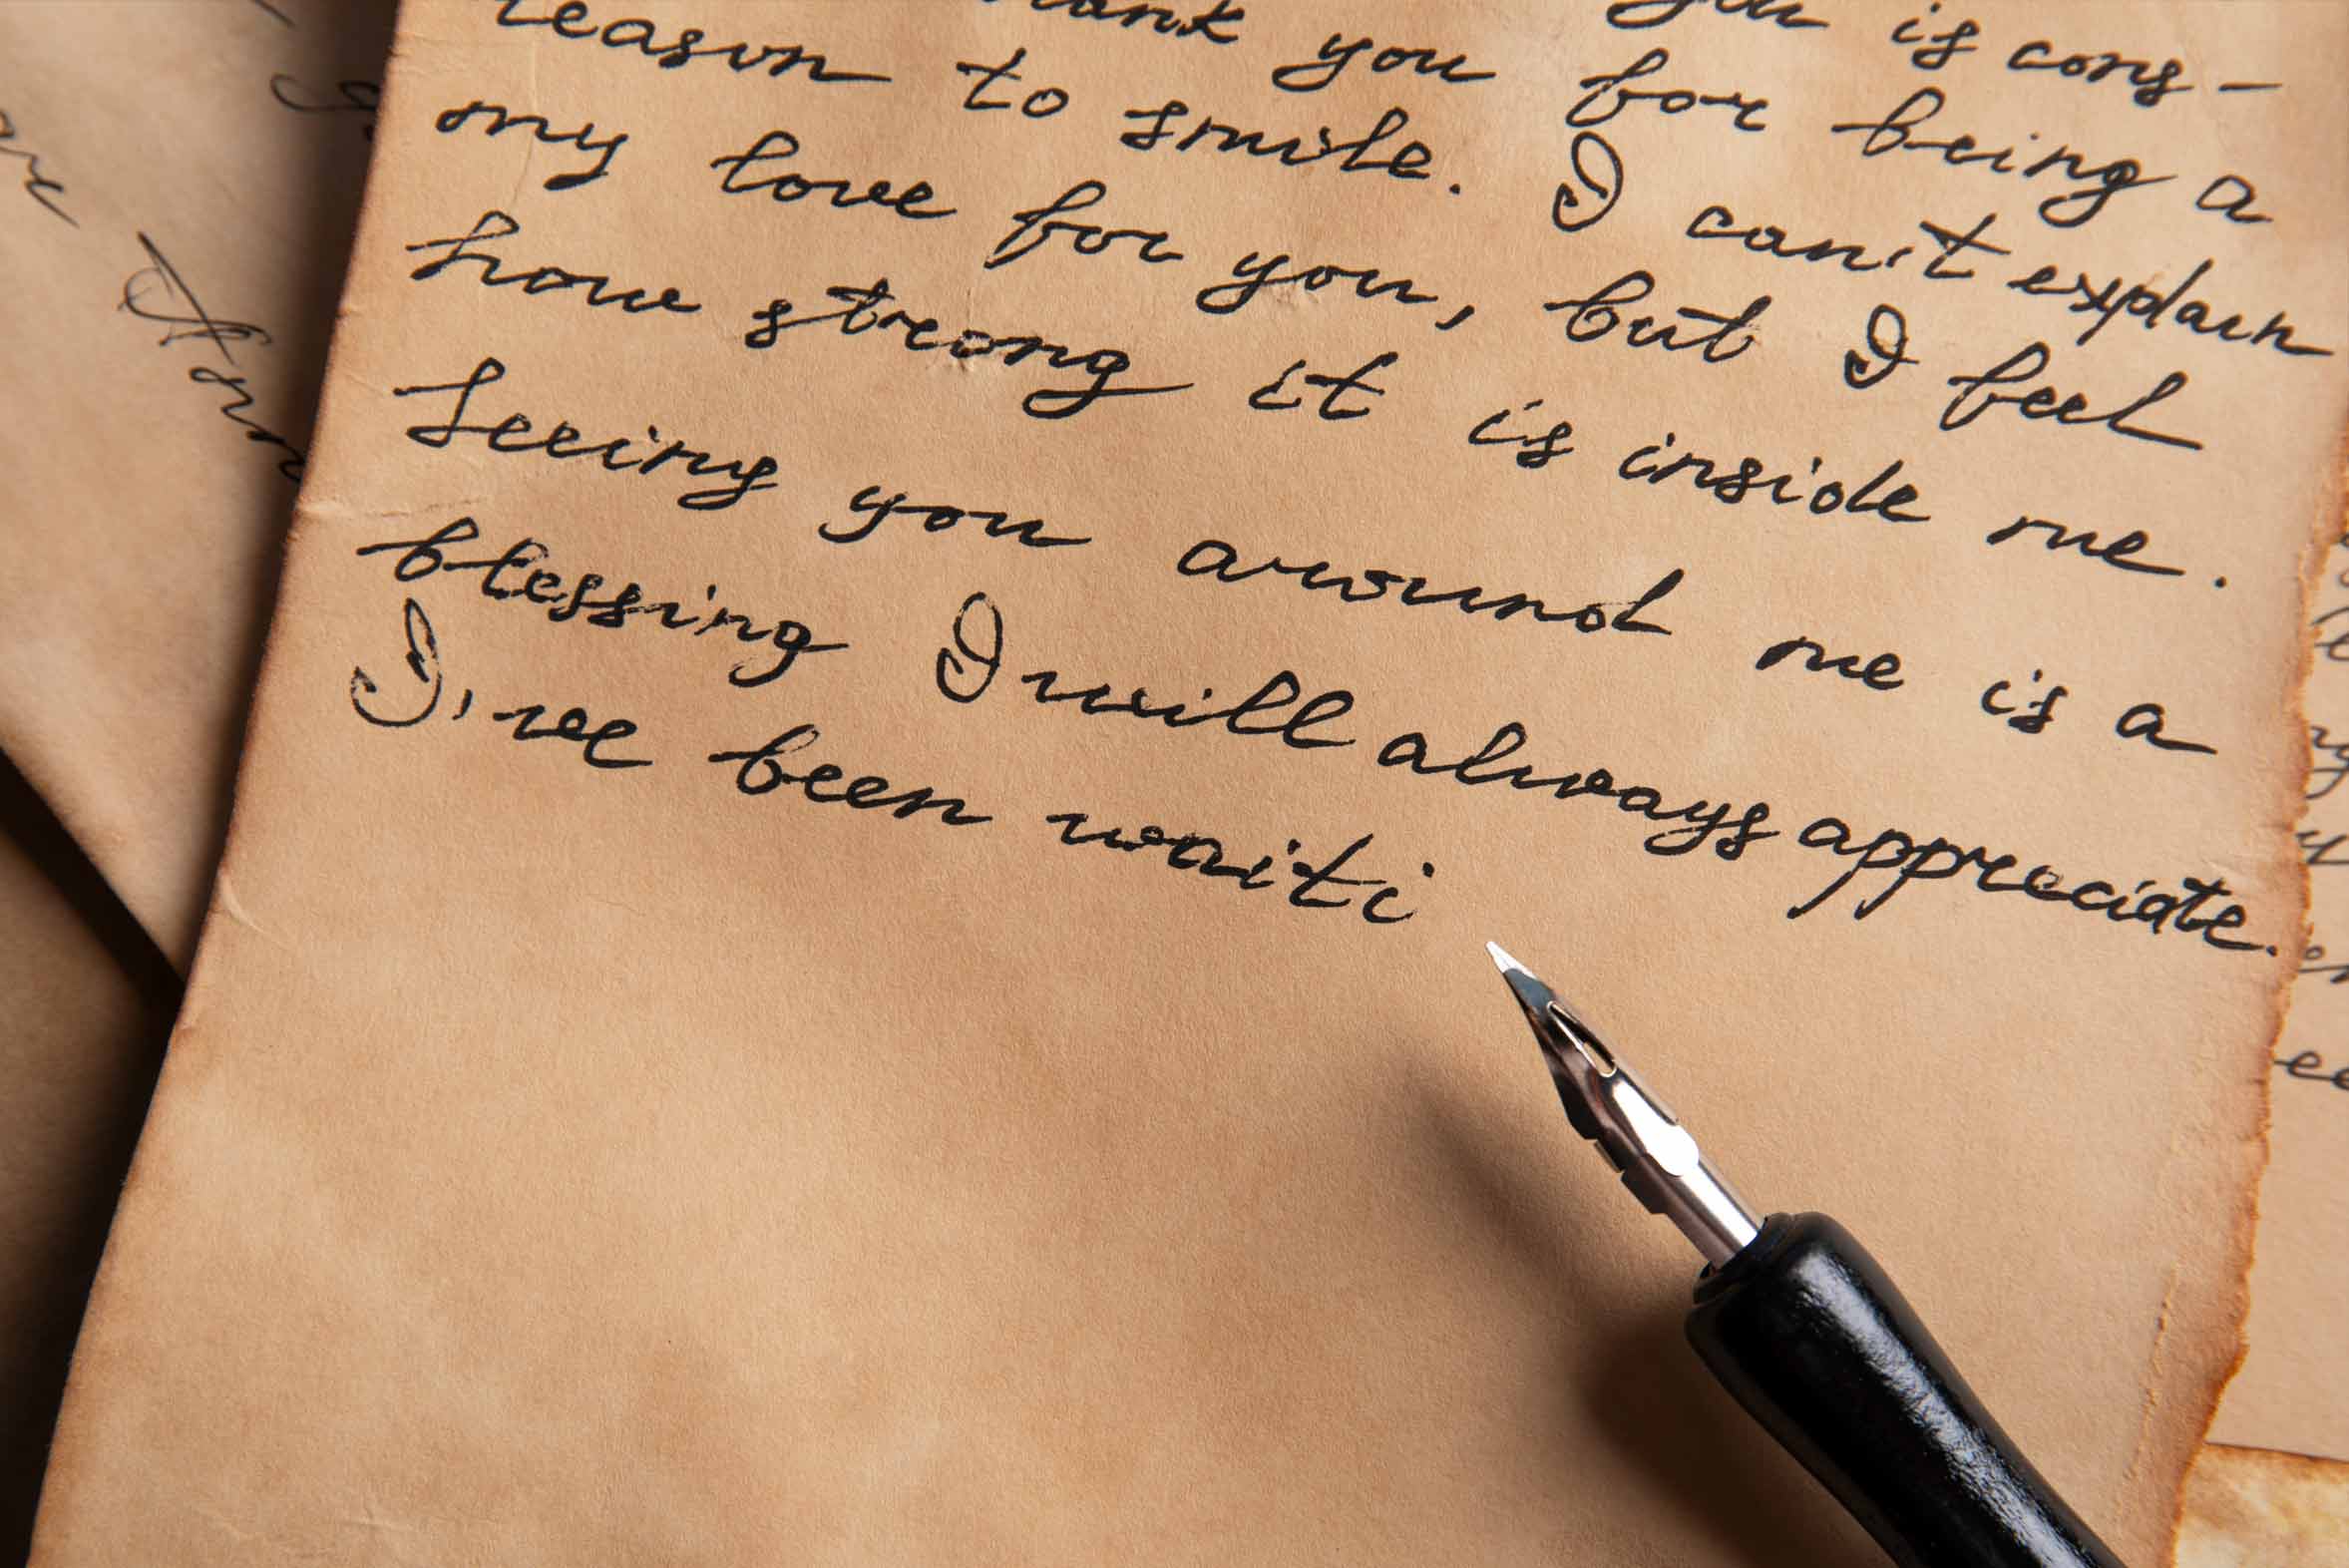 you is cons-
thank you for being a
reason to smile. I can't explain
my love for you, but I feel
how strong it is inside me.
Seeing you around me is a
blessing I will always appreciate.
I've been waiti